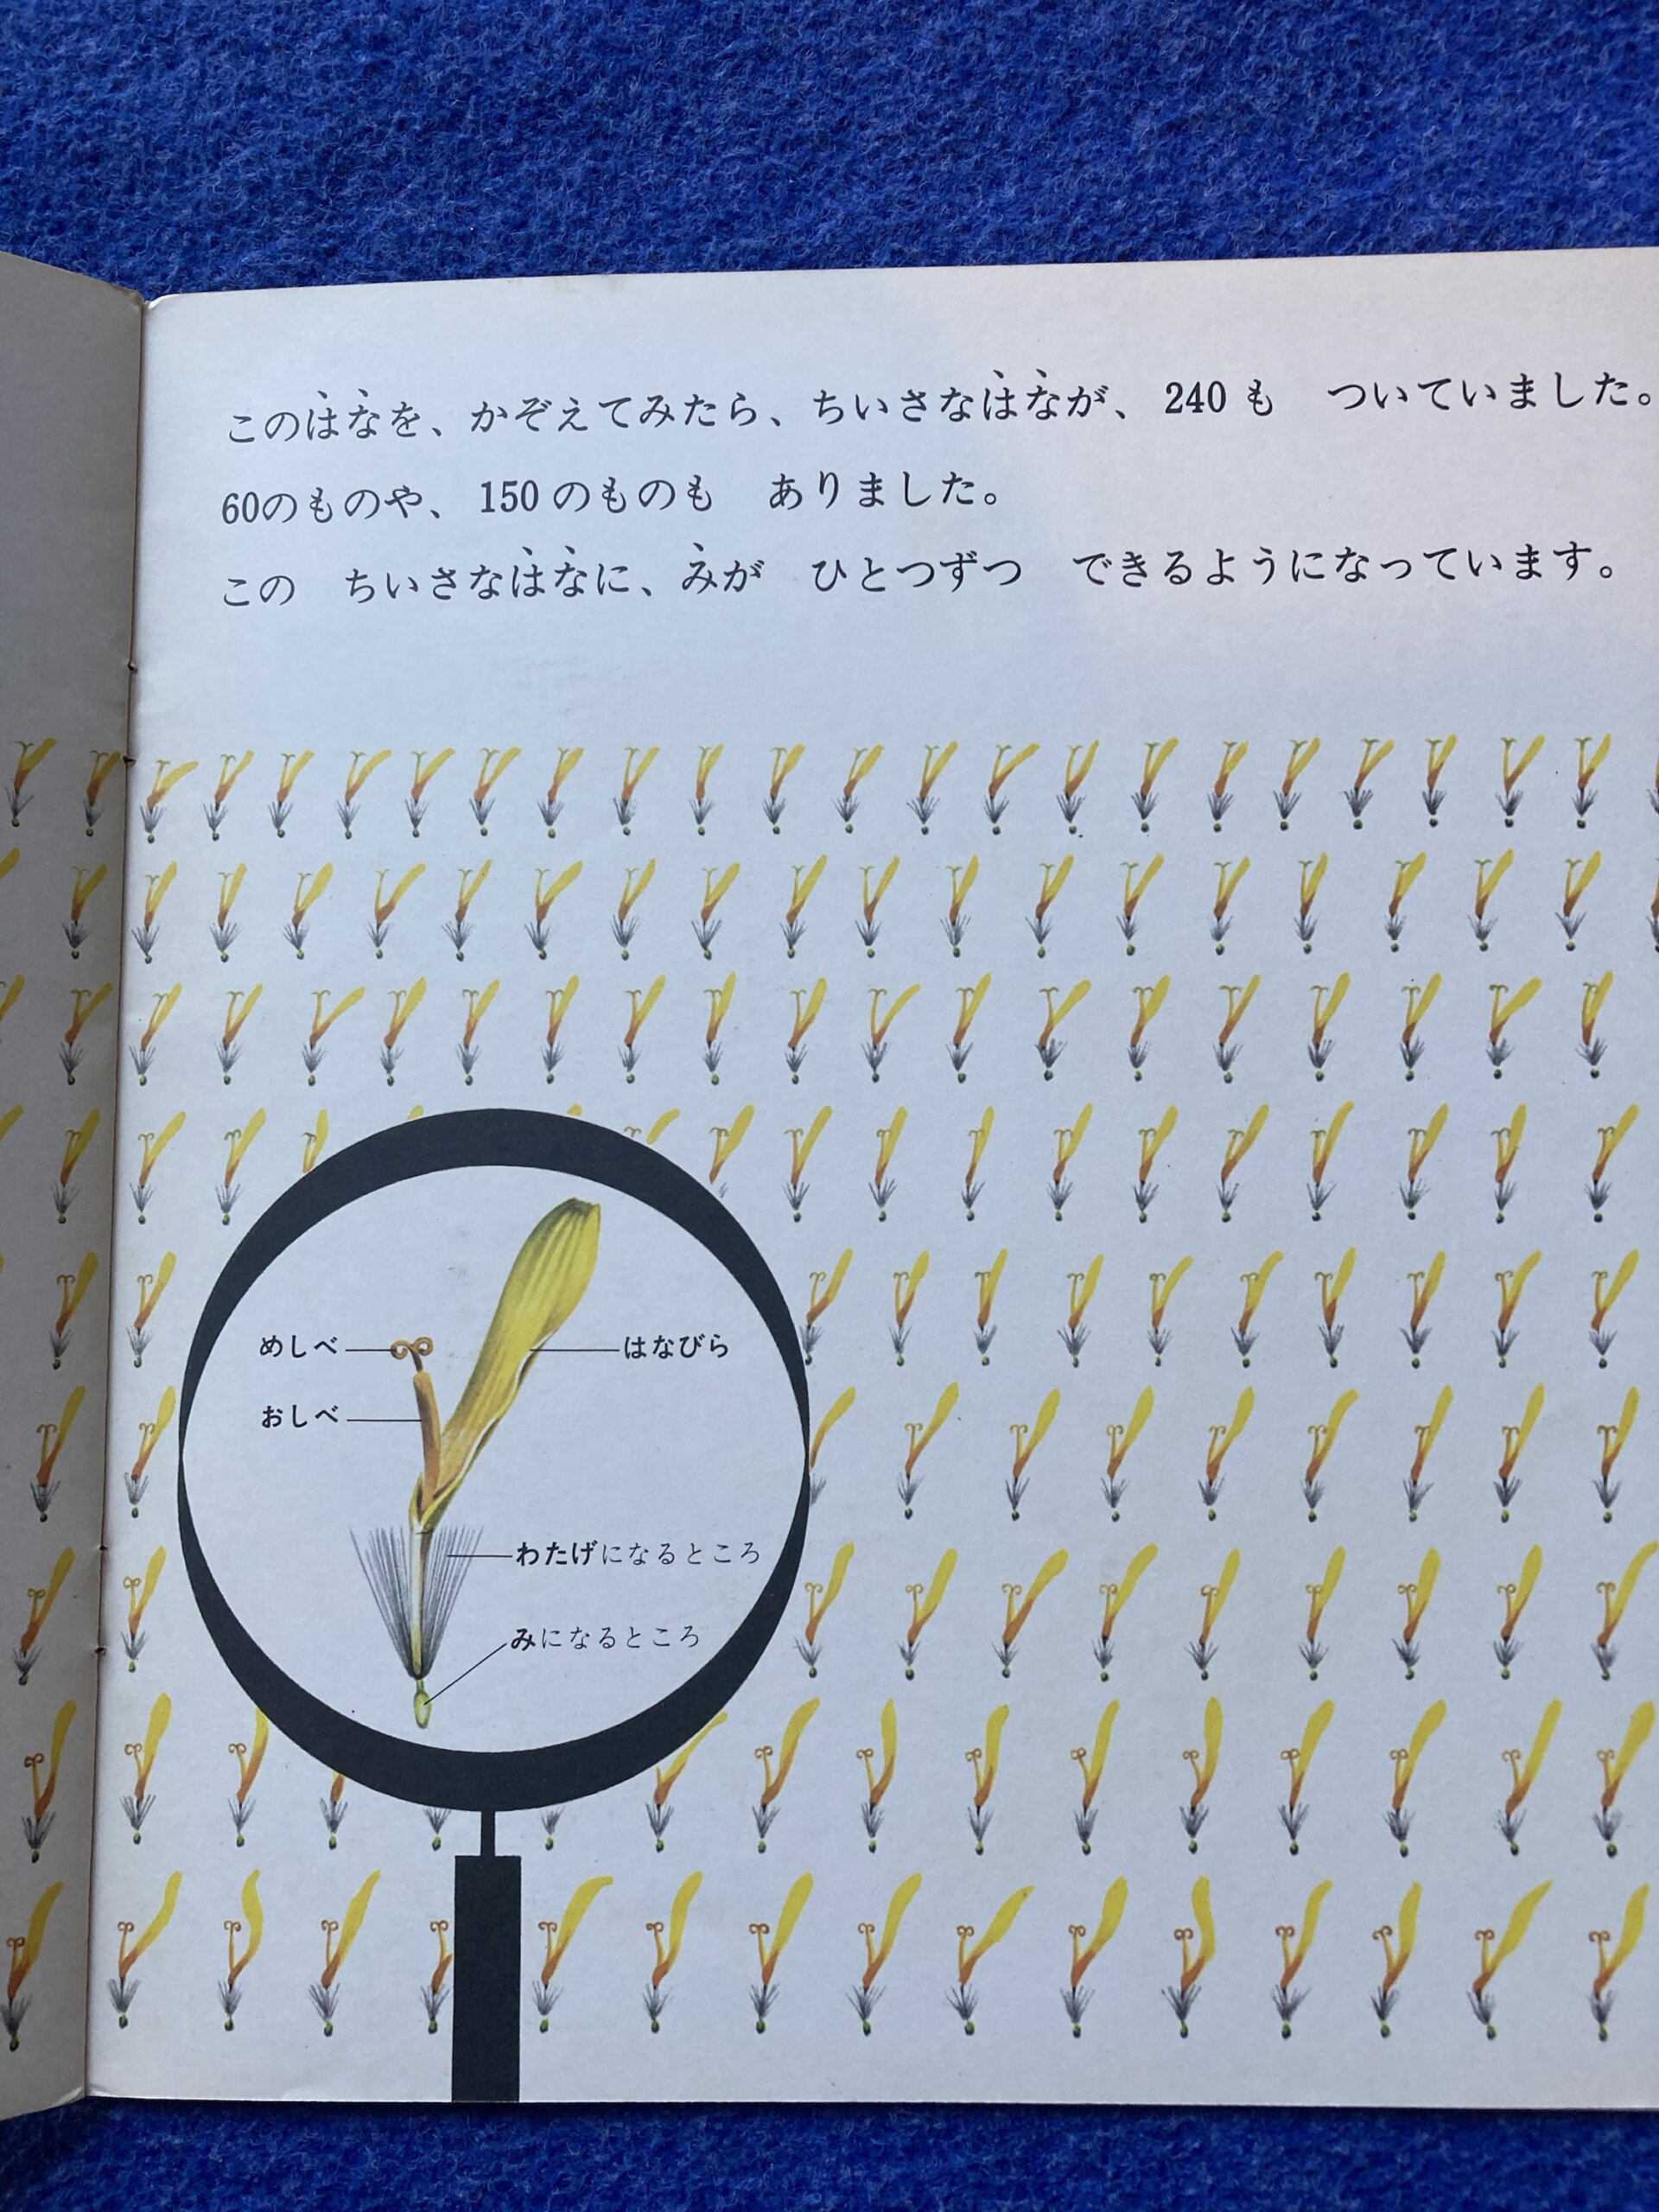 このはなを、かぞえてみたら、ちいさなはなが、240も　ついていました。
60のものや、150のものも　ありました。
この　ちいさなはなに、みが　ひとつずつ　できるようになっています。
めしべ
はなびら
おしべ
わたげになるところ
みになるところ